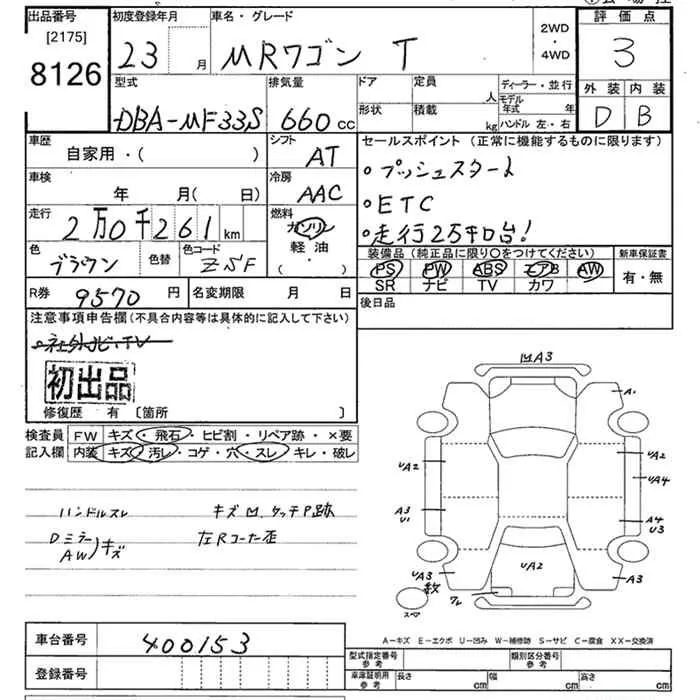 出品番号
[2175]
8126
初度登録年月
23 月
車名・グレード
MRワゴン T
2WD
・
4WD
評価点
3
型式
DBA-MF33S
排気量
660 cc
ドア
形状
定員 人
積載 kg
ディーラー・並行
モデル年式 年
ハンドル 左・右
外装 内装
D B
車歴
自家用・( )
シフト
AT
車検
年 月( 日)
冷房
AAC
走行
2万0千261 km
燃料
ガソリン
軽油
・( )
色
ブラウン
色替
色コード
ZSF
セールスポイント (正常に機能するものに限ります)
・プッシュスタート
・ETC
・走行2万キロ台!
装備品 (純正品に限り〇をつけてください)
PS PW ABS エアB AW
SR ナビ TV カワ
新車保証書
有・無
R券 9570 円
名変期限 月 日
後日品
注意事項申告欄(不具合内容等は具体的に記入して下さい)
・社外ナビ・TV
初出品
修復歴 有 〔箇所 〕
検査員記入欄
FW キズ・飛石・ヒビ割・リペア跡・×要
内装 キズ・汚レ・コゲ・穴・スレ・キレ・破レ
ハンドルスレ
キズ凹、タッチP跡
Dミラー
AW)キズ
左Rコーナー歪
凹A3
A・
UA2
UA2
UA4
A3
U1
A4
U3
UA3
数
UA2
A3
ワレ
スペ
A-キズ E-エクボ U-凹み W-補修跡 S-サビ C-腐食 XX-交換済
車台番号
400153
登録番号
型式指定番号
参考
類別区分番号
参考
車庫証明用
参考
長さ cm
幅 cm
高さ cm